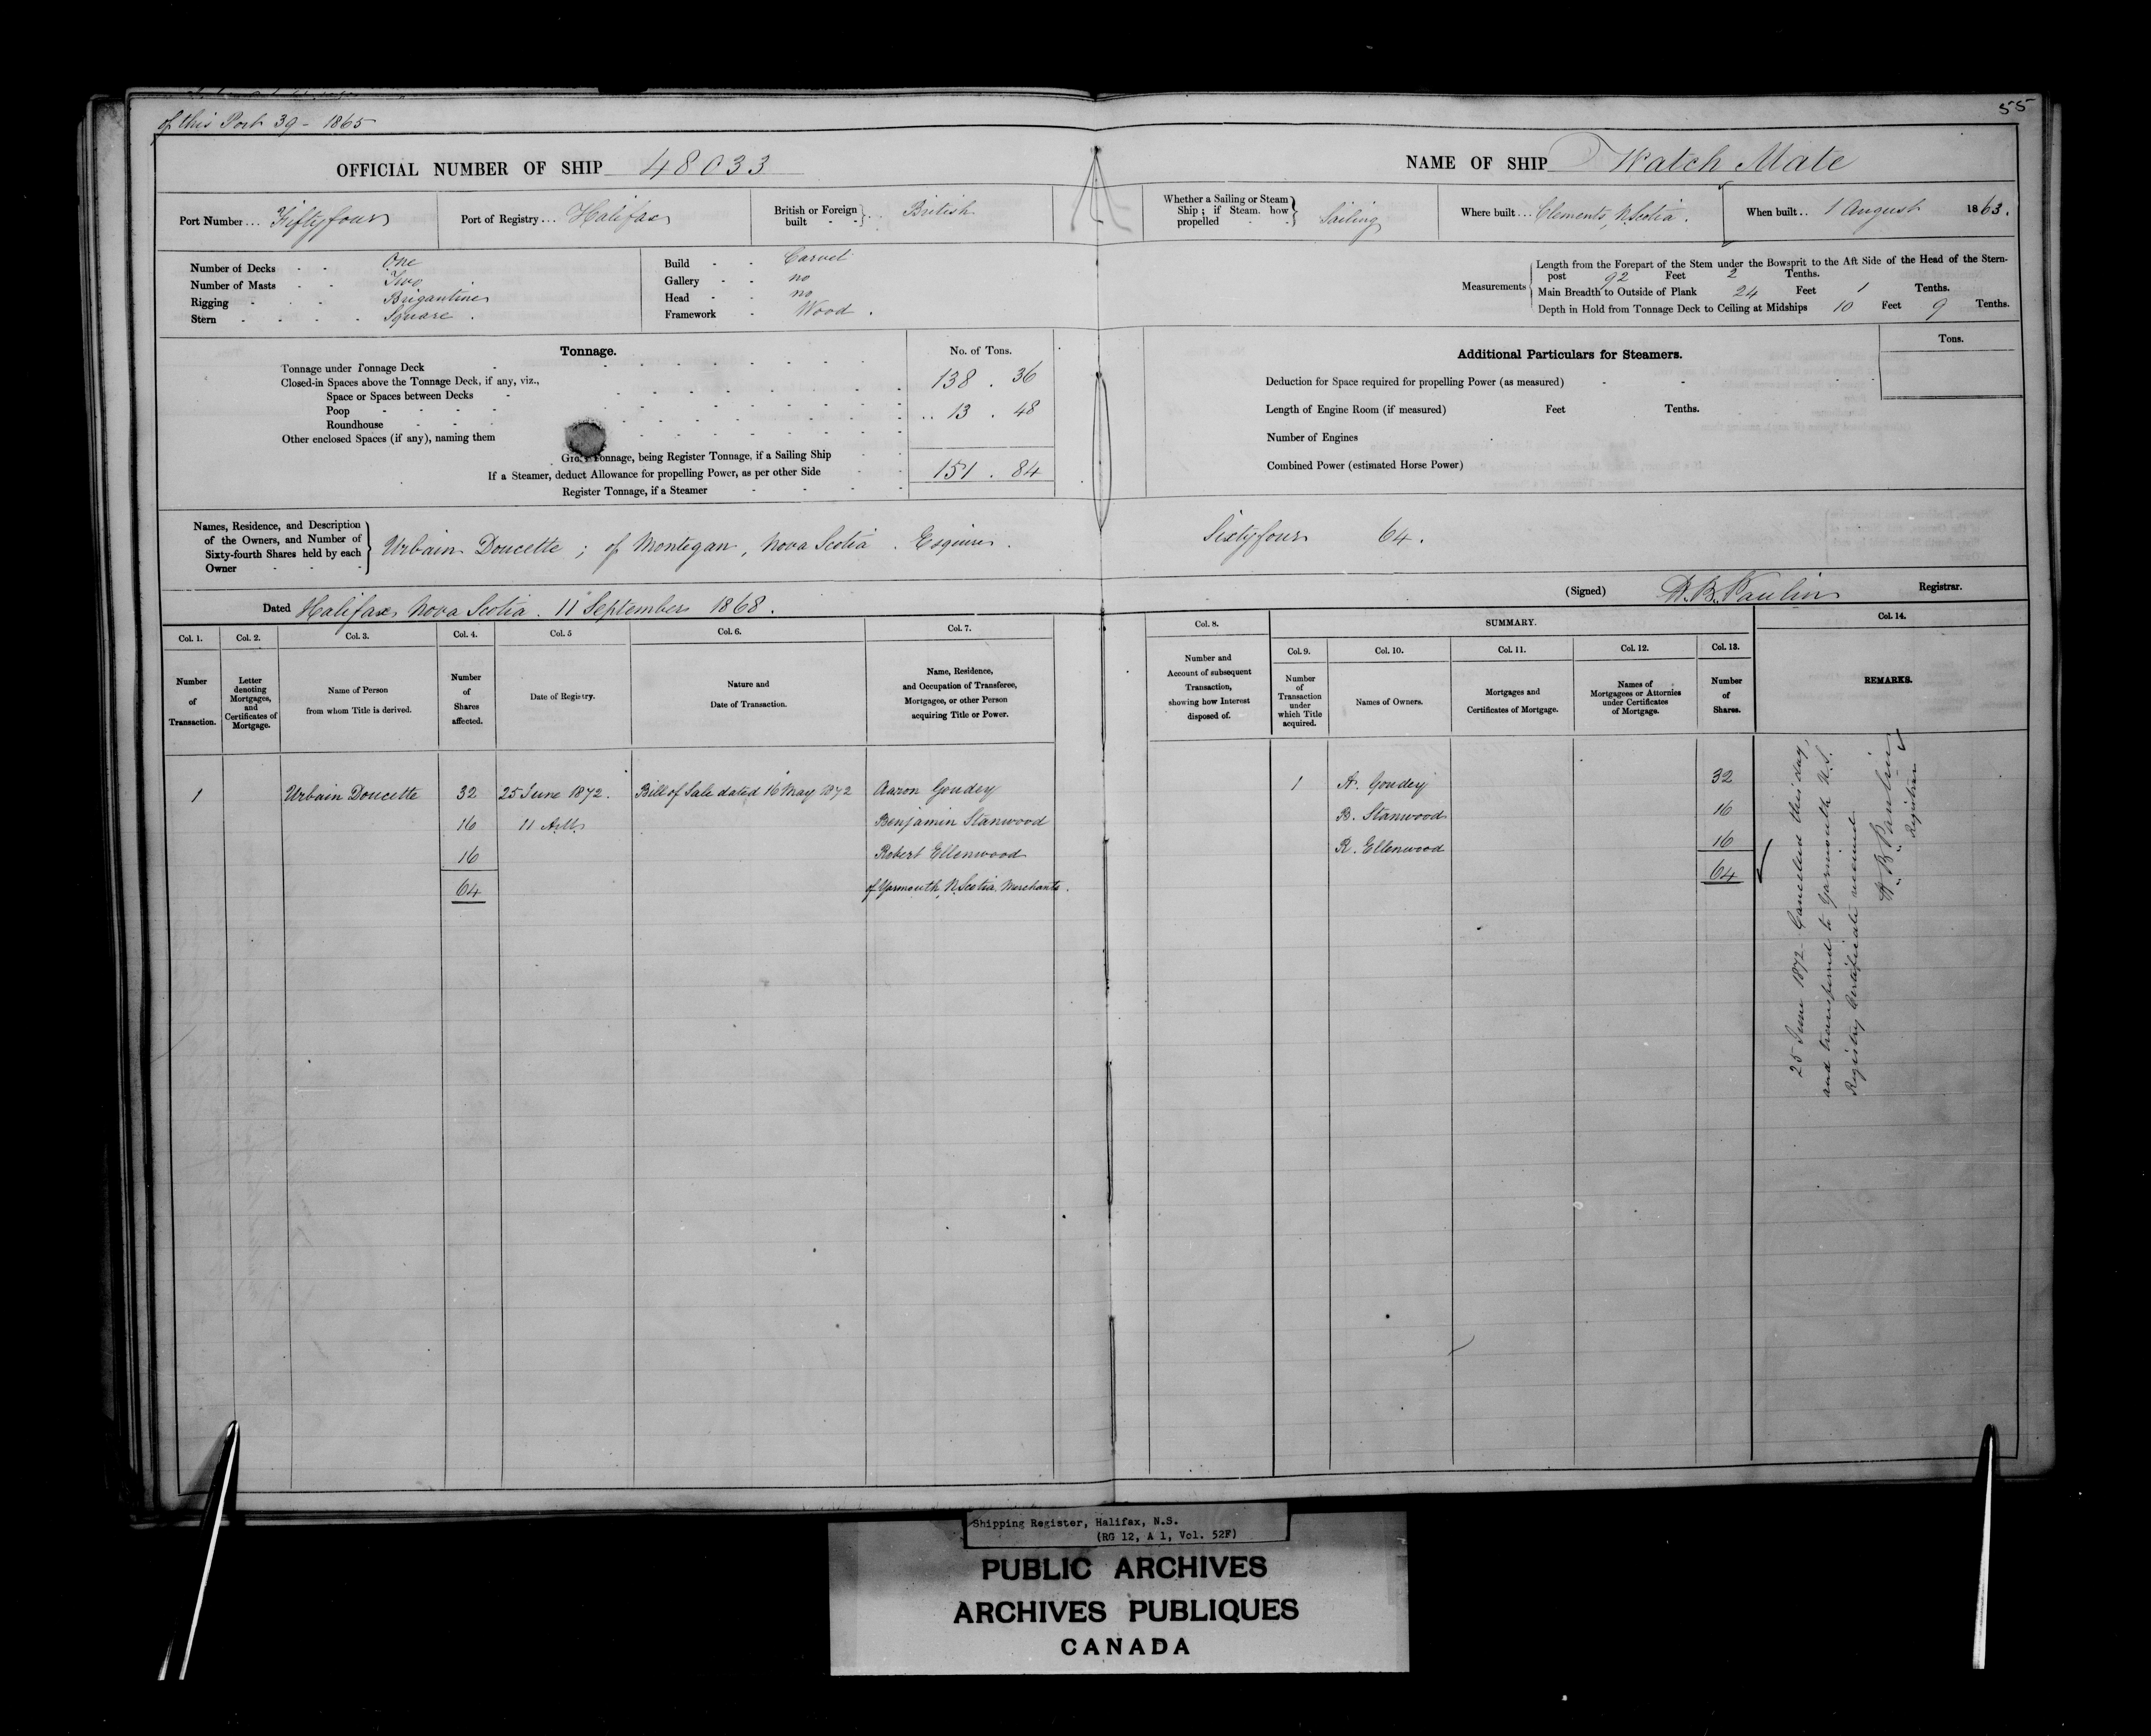 of this Port 39 - 1865
55
OFFICIAL NUMBER OF SHIP 48033
NAME OF SHIP Watch Mate
Port Number... Fiftyfour
Port of Registry... Halifax
British or Foreign built British
Whether a Sailing or Steam Ship; if Steam, how propelled Sailing
Where built... Clements, N. Scotia.
When built.. 1 August 1863.
Number of Decks One
Number of Masts Two
Rigging Brigantine
Stern Square.
Build Carvel
Gallery no
Head no
Framework Wood.
Measurements
Length from the Forepart of the Stem under the Bowsprit to the Aft Side of the Head of the Stern-
post 92 Feet 2 Tenths.
Main Breadth to Outside of Plank 24 Feet 1 Tenths.
Depth in Hold from Tonnage Deck to Ceiling at Midships 10 Feet 9 Tenths.
Tonnage.
No. of Tons.
Tonnage under Tonnage Deck 138.36
Closed-in Spaces above the Tonnage Deck, if any, viz.,
Space or Spaces between Decks
Poop .. 13.48
Roundhouse
Other enclosed Spaces (if any), naming them
Gross Tonnage, being Register Tonnage, if a Sailing Ship 151.84
If a Steamer, deduct Allowance for propelling Power, as per other Side
Register Tonnage, if a Steamer
Additional Particulars for Steamers.
Tons.
Deduction for Space required for propelling Power (as measured)
Length of Engine Room (if measured) Feet Tenths.
Number of Engines
Combined Power (estimated Horse Power)
Names, Residence, and Description
of the Owners, and Number of
Sixty-fourth Shares held by each
Owner
Urbain Doucette; of Montegan, Nova Scotia. Esquire. Sixtyfour 64.
Dated Halifax Nova Scotia. 11 September 1868.
(Signed) H. B. Paulin Registrar.
Col. 1. Col. 2. Col. 3. Col. 4. Col. 5 Col. 6. Col. 7. Col. 8. SUMMARY. Col. 14.
Col. 9. Col. 10. Col. 11. Col. 12. Col. 13.
Number of Transaction.
Letter denoting Mortgages, and Certificates of Mortgage.
Name of Person from whom Title is derived.
Number of Shares affected.
Date of Registry.
Nature and Date of Transaction.
Name, Residence, and Occupation of Transferee, Mortgagee, or other Person acquiring Title or Power.
Number and Account of subsequent Transaction, showing how Interest disposed of.
Number of Transaction under which Title acquired.
Names of Owners.
Mortgages and Certificates of Mortgage.
Names of Mortgagees or Attornies under Certificates of Mortgage.
Number of Shares.
REMARKS.
1 Urbain Doucette 32 25 June 1872. Bill of Sale dated 16 May 1872 Aaron Goudey 1 A. Goudey 32
16 11 A.M. Benjamin Stanwood B. Stanwood 16
16 Robert Ellenwood R. Ellenwood 16
64 of Yarmouth, N. Scotia, Merchants. 64
25 June 1872 Cancelled this day,
and transferred to Yarmouth N.S.
Registry Certificate received
H. B. Paulin
Registrar
Shipping Register, Halifax, N.S.
(RG 12, A 1, Vol. 52F)
PUBLIC ARCHIVES
ARCHIVES PUBLIQUES
CANADA